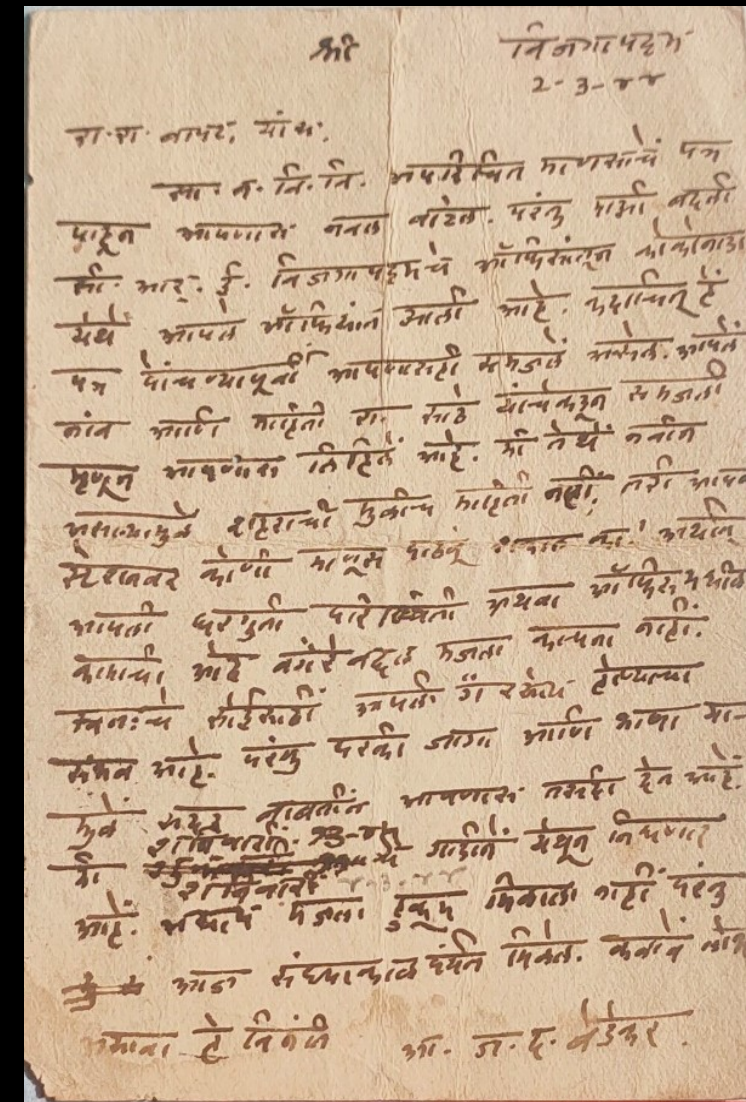 श्री
विजगापट्टम
२-३-४४
रा. रा. बापट, यांस,
सा. न. वि. वि. अपरिचित माणसाचें पत्र
पाहून आपणास नवल वाटेल. परंतु माझी बदली
सी. आर्. ई. विजगापट्टमचे ऑफिसांतून कोकोनाडा
येथें आपले ऑफिसांत झाली आहे. कदाचित् हें
पत्र पोंचण्यापूर्वी आपणासही समजलें असेल. आपलें
नांव आणि माहिती रा. साठे यांचेकडून समजली
म्हणून आपणांस लिहिलें आहे. मी तेथें नवीन
असल्यामुळें शहराची मुळींच माहिती नाहीं, तरी आपण
स्टेशनवर कोणी माणूस पाठवूं शकाल का? अर्थात्
आपली घरगुती परिस्थिती अथवा ऑफिसमधील
कामाची आहे वगैरे बद्दल मजला कल्पना नाहीं.
स्वतःचे सोईसाठीं आपली गैरसोय होण्याचा
संभव आहे. परंतु परकी जागा आणि भाषा या-
मुळें सदर बाबतींत आपणास तसदी देत आहें.
मी शनिवारीं गाडीनें येथून निघणार
शनिवारीं ४-३-४४
आहें. अद्याप मजला हुकूम मिळाला नाहीं परंतु
आज संध्याकाळ पर्यंत मिळेल. कळावें लोभ
असावा हे विनंति आ. ज. द. बेडेकर.